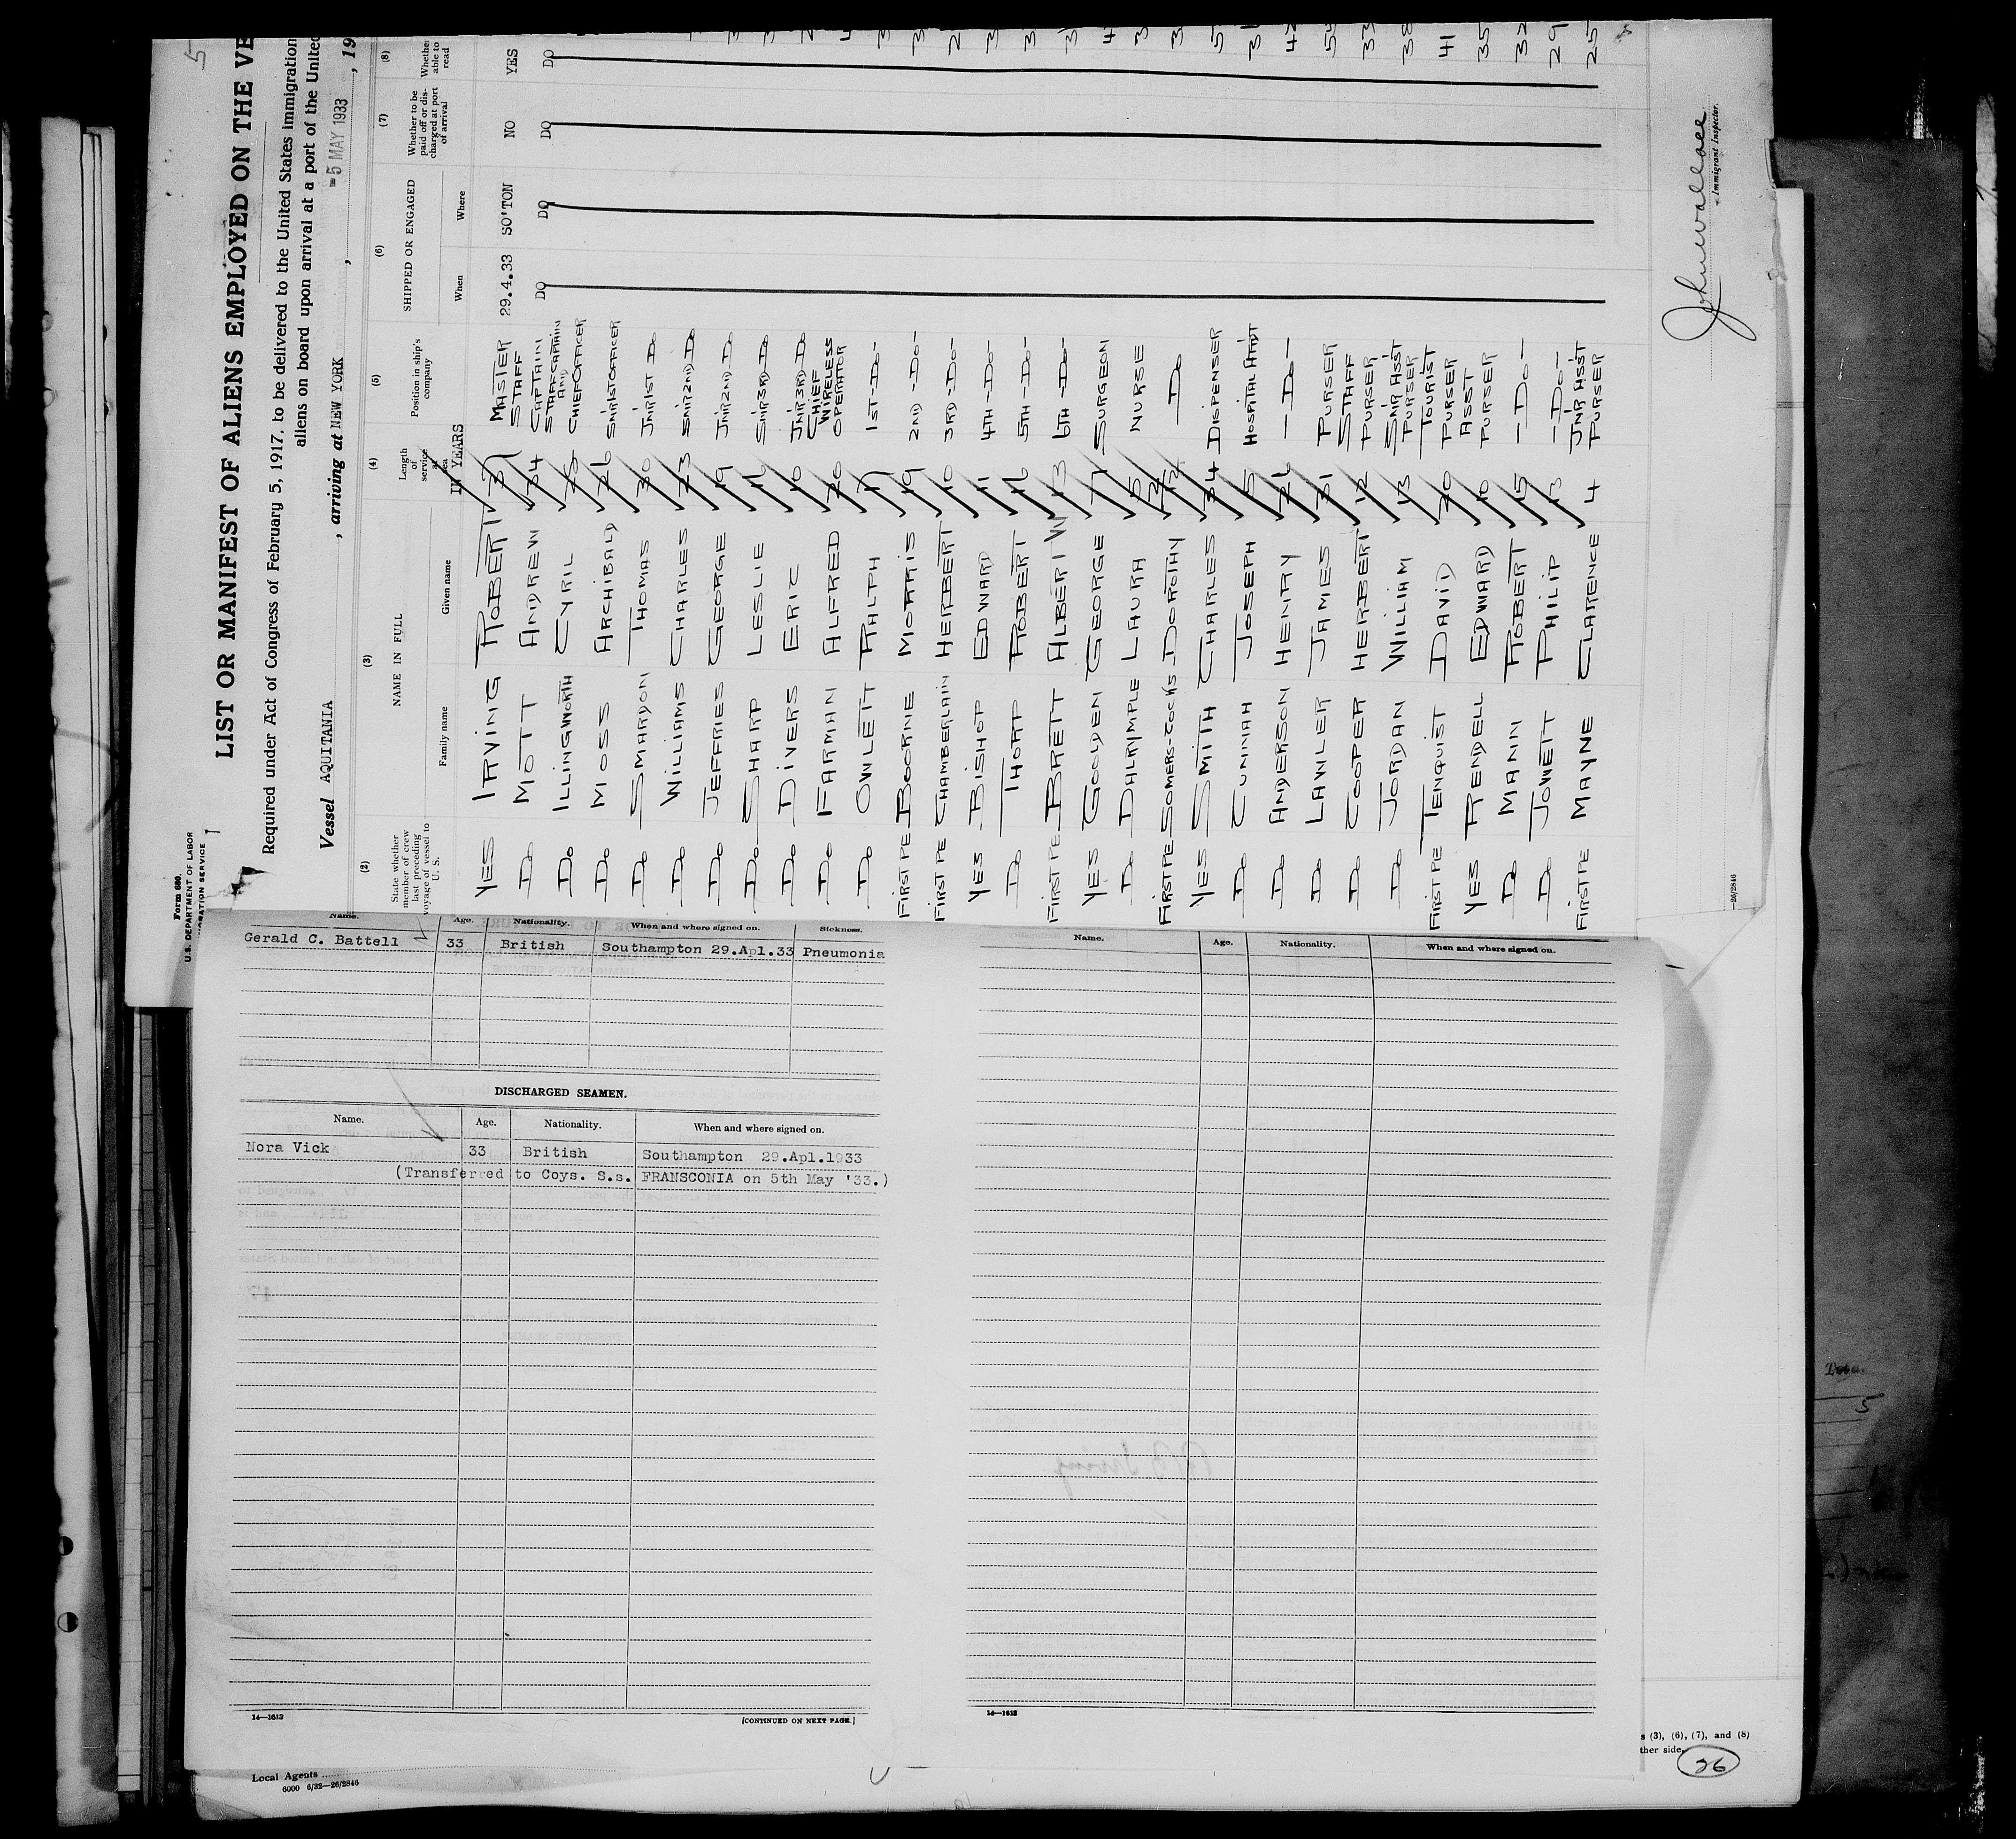 5
Form 660.
U.S. DEPARTMENT OF LABOR
LIST OR MANIFEST OF ALIENS EMPLOYED ON THE VE
Required under Act of Congress of February 5, 1917, to be delivered to the United States immigration
aliens on board upon arrival at a port of the United
Vessel AQUITANIA , arriving at NEW YORK , -5 MAY 1933 , 19
(2) (3) (4) (5) (6) (7) (8)
State whether member of crew last preceding voyage of vessel to U. S.
NAME IN FULL
Family name Given name
Length of service at sea
IN YEARS
Position in ship's company
SHIPPED OR ENGAGED
When Where
Whether to be paid off or discharged at port of arrival
Whether able to read
YES IRVING ROBERT 37 MASTER 29.4.33 SO'TON NO YES
DO MOTT ANDREW 34 STAFF CAPTAIN DO DO DO DO
DO ILLINGWORTH CYRIL 25 STAFF CAPTAIN AND CHIEF OFFICER
DO MOSS ARCHIBALD 26 SNR 1ST OFFICER
DO SMARDON THOMAS 30 JNR 1ST DO
DO WILLIAMS CHARLES 23 SNR 2ND DO
DO JEFFRIES GEORGE 19 JNR 2ND DO
DO SHARP LESLIE 16 SNR 3RD DO
DO DIVERS ERIC 10 JNR 3RD DO
DO FARMAN ALFRED 20 CHIEF WIRELESS OPERATOR
DO OWLETT RALPH 17 1ST -DO-
FIRST PE BOORNE MORRIS 19 2ND -DO-
FIRST PE CHAMBERLAIN HERBERT 10 3RD -DO-
YES BISHOP EDWARD 11 4TH -DO-
DO THORP ROBERT 16 5TH -DO-
FIRST PE BRETT ALBERT W 13 6TH -DO-
YES GOOLDEN GEORGE 7 SURGEON
DO DALRYMPLE LAURA 5 NURSE
FIRST PE SOMERS-COCKS DOROTHY DO
YES SMITH CHARLES 34 DISPENSER
DO CUNNAH JOSEPH 5 HOSPITAL ATTDT 31
DO ANDERSON HENRY 26 -DO- 42
DO LAWLER JAMES 31 PURSER 54
DO COOPER HERBERT 12 STAFF PURSER 33
DO JORDAN WILLIAM 13 SNR ASST PURSER 38
FIRST PE TENQUIST DAVID 20 TOURIST PURSER 41
YES RENDELL EDWARD 10 ASST PURSER 35
DO MANN ROBERT 15 -DO- 32
DO JOWETT PHILIP 13 -DO- 29
FIRST PE MAYNE CLARENCE 4 JNR ASST PURSER 25
John Wallace
Immigrant Inspector.
—26/2846
Name. Age. Nationality. When and where signed on. Sickness.
Gerald C. Battell 33 British Southampton 29.Apl.33 Pneumonia
DISCHARGED SEAMEN.
Name. Age. Nationality. When and where signed on.
Nora Vick 33 British Southampton 29.Apl.1933
(Transferred to Coys. S.s. FRANSCONIA on 5th May '33.)
14—1613
[CONTINUED ON NEXT PAGE.]
Name. Age. Nationality. When and where signed on.
14—1613
Local Agents
6000 6/32—26/2846
s (3), (6), (7), and (8)
ther side.
26